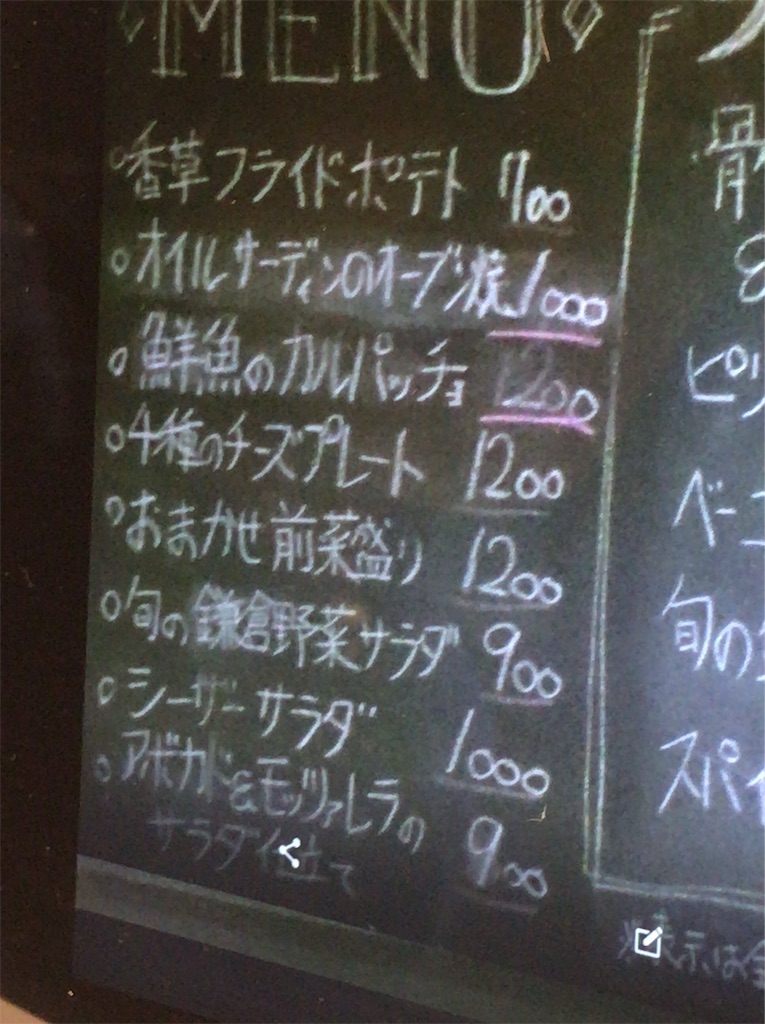 MENU
香草フライドポテト 700
オイルサーディンのオーブン焼 1000
鮮魚のカルパッチョ 1200
4種のチーズプレート 1200
おまかせ前菜盛り 1200
旬の鎌倉野菜サラダ 900
シーザーサラダ 1000
アボカド&モッツァレラの
サラダ仕立て 900
骨
8
ピリ
ベーコ
旬の
スパイ
※表示は